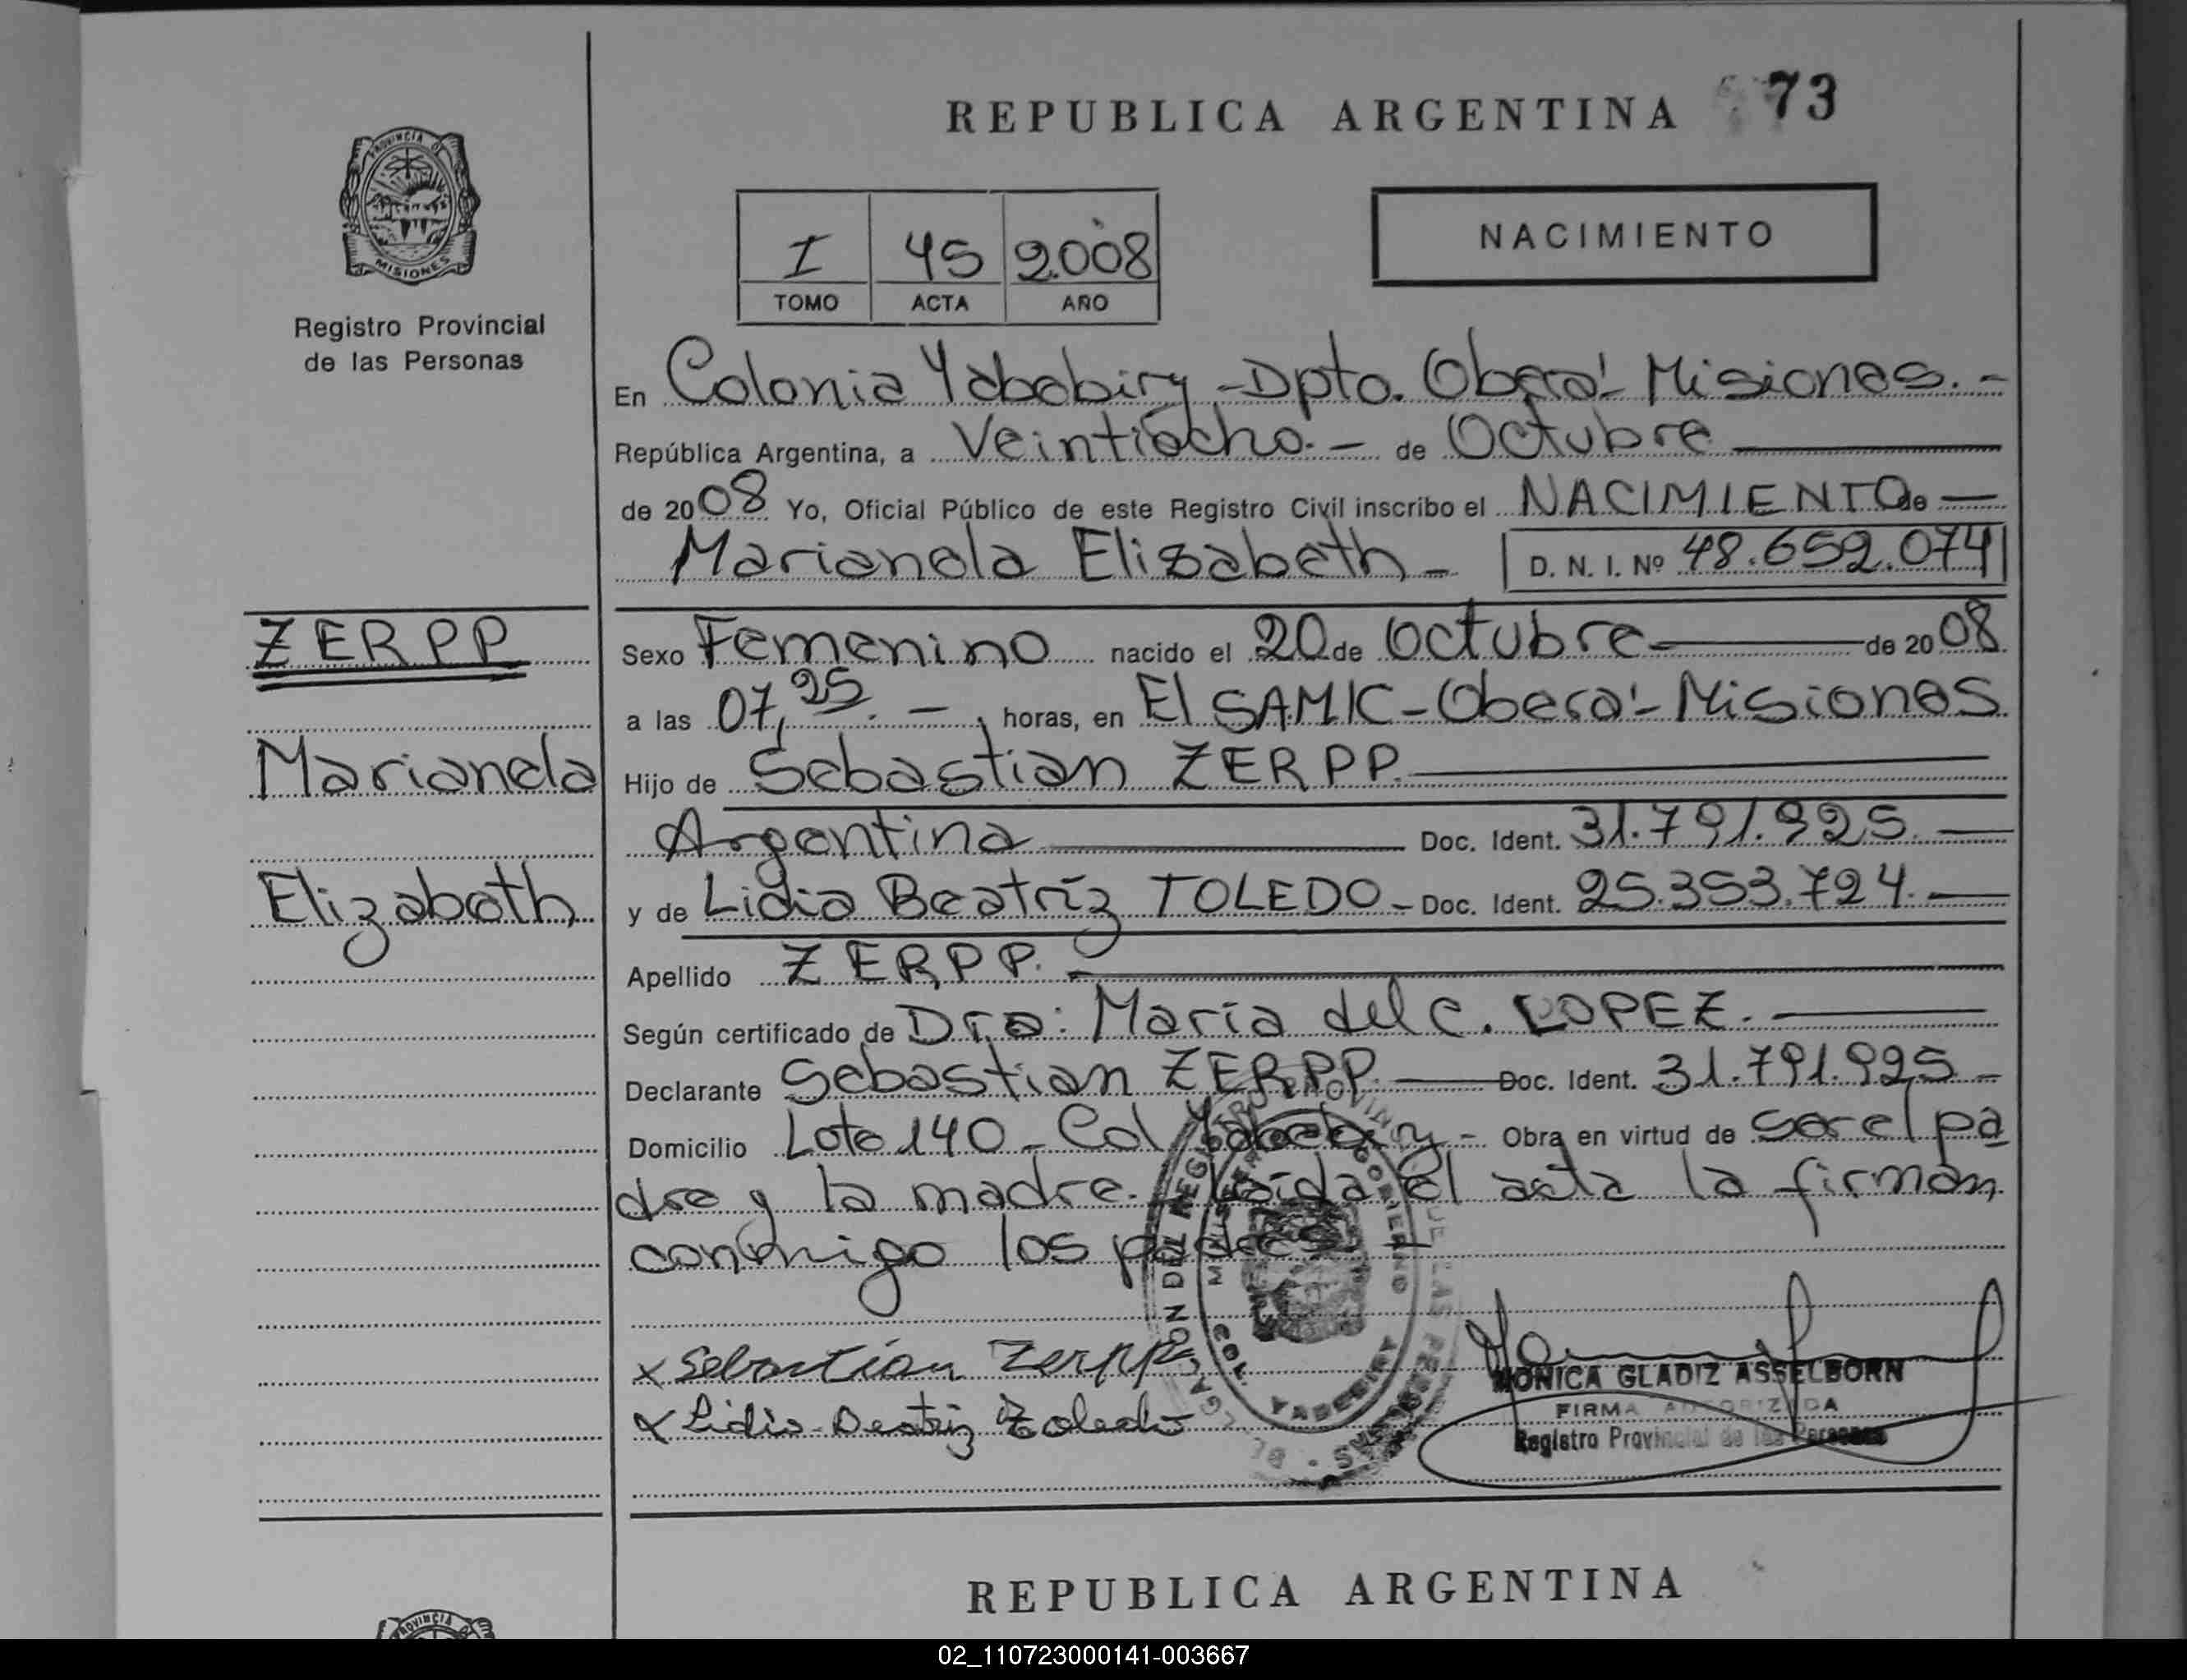 REPUBLICA ARGENTINA 73
PROVINCIA DE
MISIONES
Registro Provincial
de las Personas
I 45 2008
TOMO ACTA AÑO
NACIMIENTO
En Colonia Yabebiry - Dpto. Oberá - Misiones. -
República Argentina, a Veintiocho. - de Octubre
de 2008 Yo, Oficial Público de este Registro Civil inscribo el NACIMIENTO de
Marianela Elisabeth - D. N. I. Nº 48.652.074
ZERPP
Marianela
Elizabeth
Sexo Femenino nacido el 20 de Octubre de 2008
a las 07,25. - horas, en El SAMIC - Oberá - Misiones
Hijo de Sebastian ZERPP.
Argentina Doc. Ident. 31.791.925.
y de Lidia Beatríz TOLEDO - Doc. Ident. 25.353.724.
Apellido ZERPP. -
Según certificado de Dra: María del C. LOPEZ.
Declarante Sebastian ZERPP. Doc. Ident. 31.791.925 -
Domicilio Lote 140 - Col Yabebiry - Obra en virtud de ser el pa
dre y la madre. Leída el acta la firman
conmigo los padres. -
x Sebastián Zerpp
x Lidia Beatriz Toledo
MONICA GLADIZ ASSELBORN
FIRMA AUTORIZADA
Registro Provincial de las Personas
MINISTERIO GOBIERNO
COL. YABEBIRY
REPUBLICA ARGENTINA
PROVINCIA DE
02_110723000141-003667